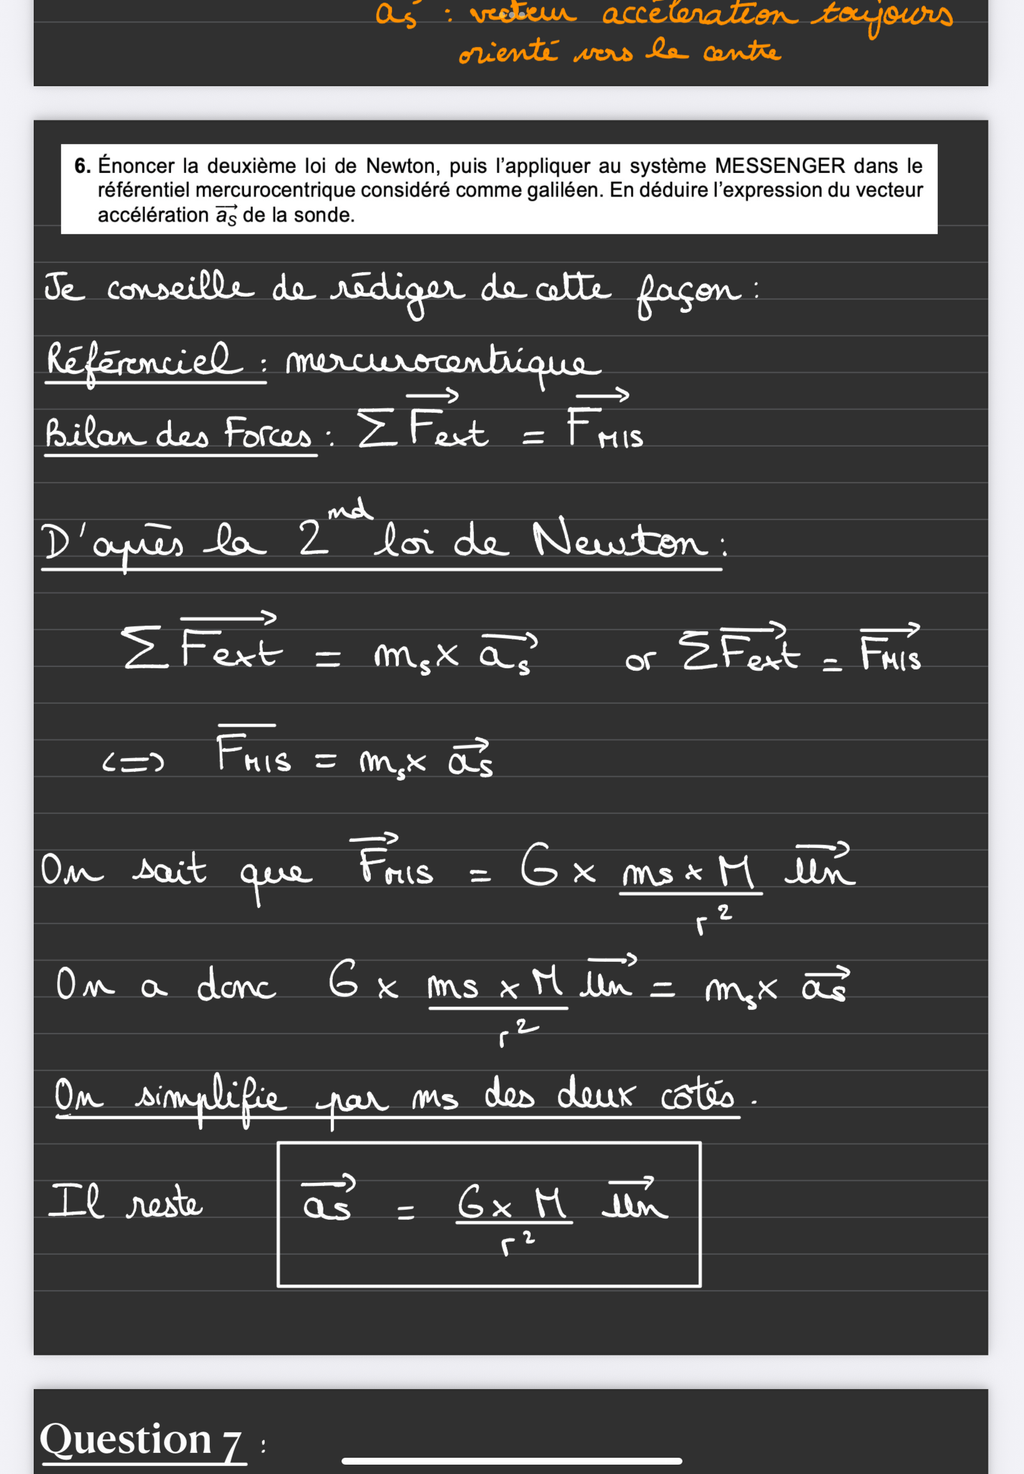 as : vecteur accéleration toujours
orienté vers le centre
6. Énoncer la deuxième loi de Newton, puis l'appliquer au système MESSENGER dans le
référentiel mercurocentrique considéré comme galiléen. En déduire l'expression du vecteur
accélération a⃗s de la sonde.
Je conseille de rédiger de cette façon :
Référenciel : mercurocentrique
Bilan des Forces : Σ F⃗ext = F⃗M/S
D'après la 2nd loi de Newton :
Σ F⃗ext = ms × a⃗s or Σ F⃗ext = F⃗M/S
<=> F̅M/S = ms × a⃗s
On sait que F⃗M/S = G × (ms × M)/r² u⃗n
On a donc G × (ms × M)/r² u⃗n = ms × a⃗s
On simplifie par ms des deux côtés.
Il reste a⃗s = (G × M)/r² u⃗n
Question 7 :